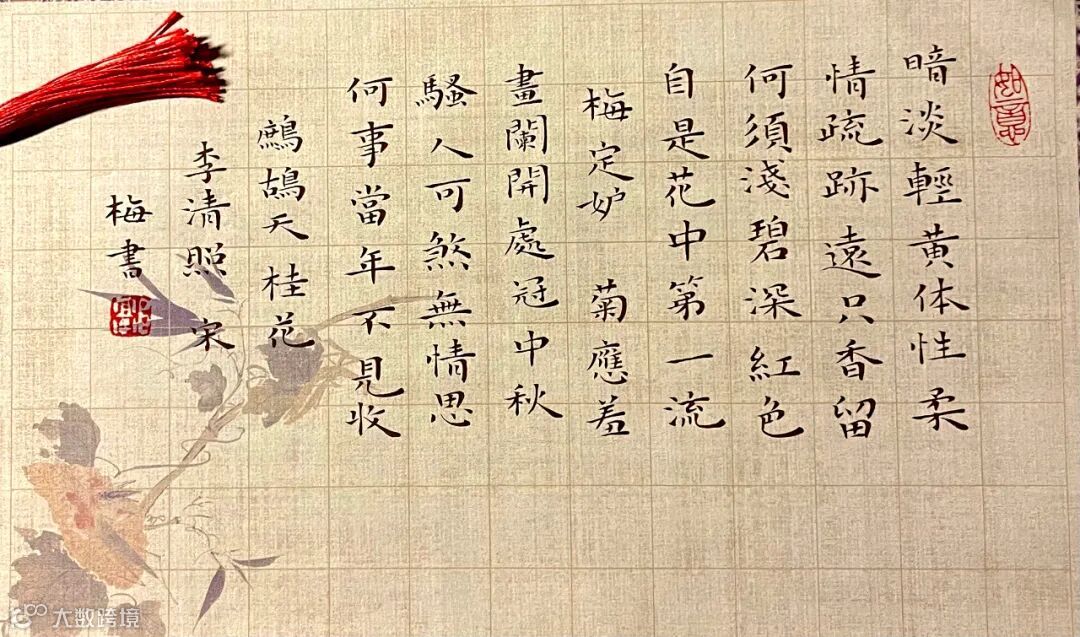 如意
暗淡輕黄体性柔
情疏跡遠只香留
何須淺碧深紅色
自是花中第一流
梅定妒 菊應羞
畫闌開處冠中秋
騷人可煞無情思
何事當年不見收
鷓鴣天 桂花
李清照 宋
梅書
大数跨境